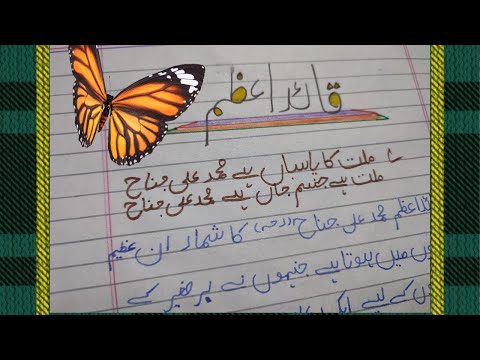 قائد اعظم
ملت کا پاسباں ہے محمد علی جناح
ملت ہے جسم جاں ہے محمد علی جناح
اعظم محمد علی جناح (رحمہ) کا شمار ان عظیم
میں ہوتا ہے جنہوں نے برصغیر کے
کے لیے